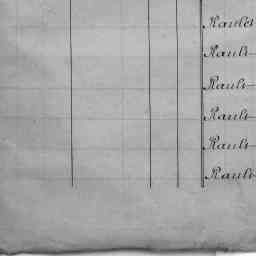 Raulet
Rault
Rault
Rault
Rault
Rault